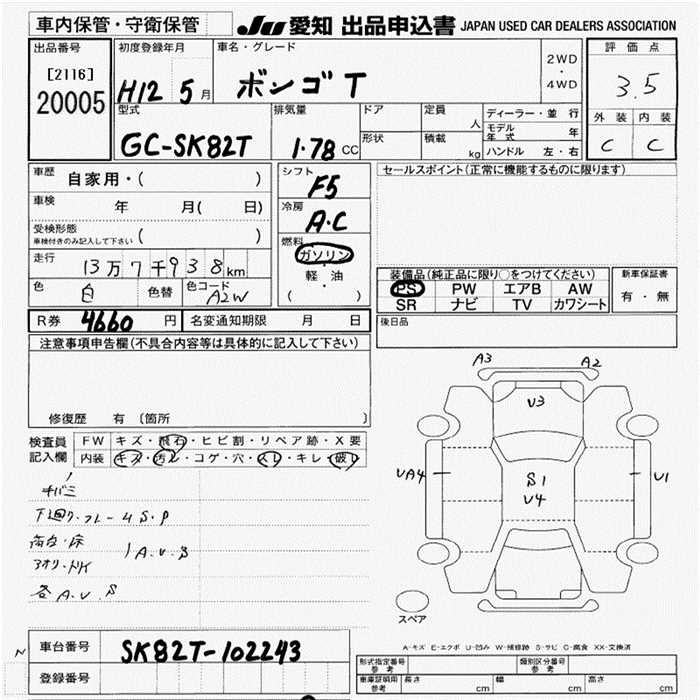 車内保管・守衛保管
JU 愛知 出品申込書 JAPAN USED CAR DEALERS ASSOCIATION
出品番号
[2116]
20005
初度登録年月
H12 5月
車名・グレード
ボンゴ T
2WD
・
4WD
評価点
3.5
外装 内装
C C
型式
GC-SK82T
排気量
1.78 CC
ドア
形状
定員
人
積載
kg
ディーラー・並行
モデル年式 年
ハンドル 左・右
車歴 自家用・( )
車検 年 月( 日)
受検形態
車検付きのみ記入して下さい ( )
走行 13万7千938km
色 白 色替 色コード A2W
シフト
F5
冷房
A・C
燃料
ガソリン
・
軽・油
( )
セールスポイント(正常に機能するものに限ります)
装備品(純正品に限り○をつけてください)
PS PW エアB AW
SR ナビ TV カワシート
新車保証書
有・無
R券 4660 円 名変通知期限 月 日
後日品
注意事項申告欄(不具合内容等は具体的に記入して下さい)
修復歴 有 [箇所 ]
検査員
記入欄
FW キズ・飛石・ヒビ割・リペア跡・X要
内装 キズ・汚レ・コゲ・穴・スレ・キレ・破レ
下廻り・フレームS.P
荷台・床
アオリ・トリイ
A.U.S
各A.U.S
A3 A2
U3
UA4
S1
U4
U1
スペア
A-キズ E-エクボ U-凹み W-補修跡 S-サビ C-腐食 XX-交換済
N
車台番号 SK82T-102243
登録番号
形式指定番号
参考
類別区分番号
参考
車庫証明用
参考
長さ cm 幅 cm 高さ cm